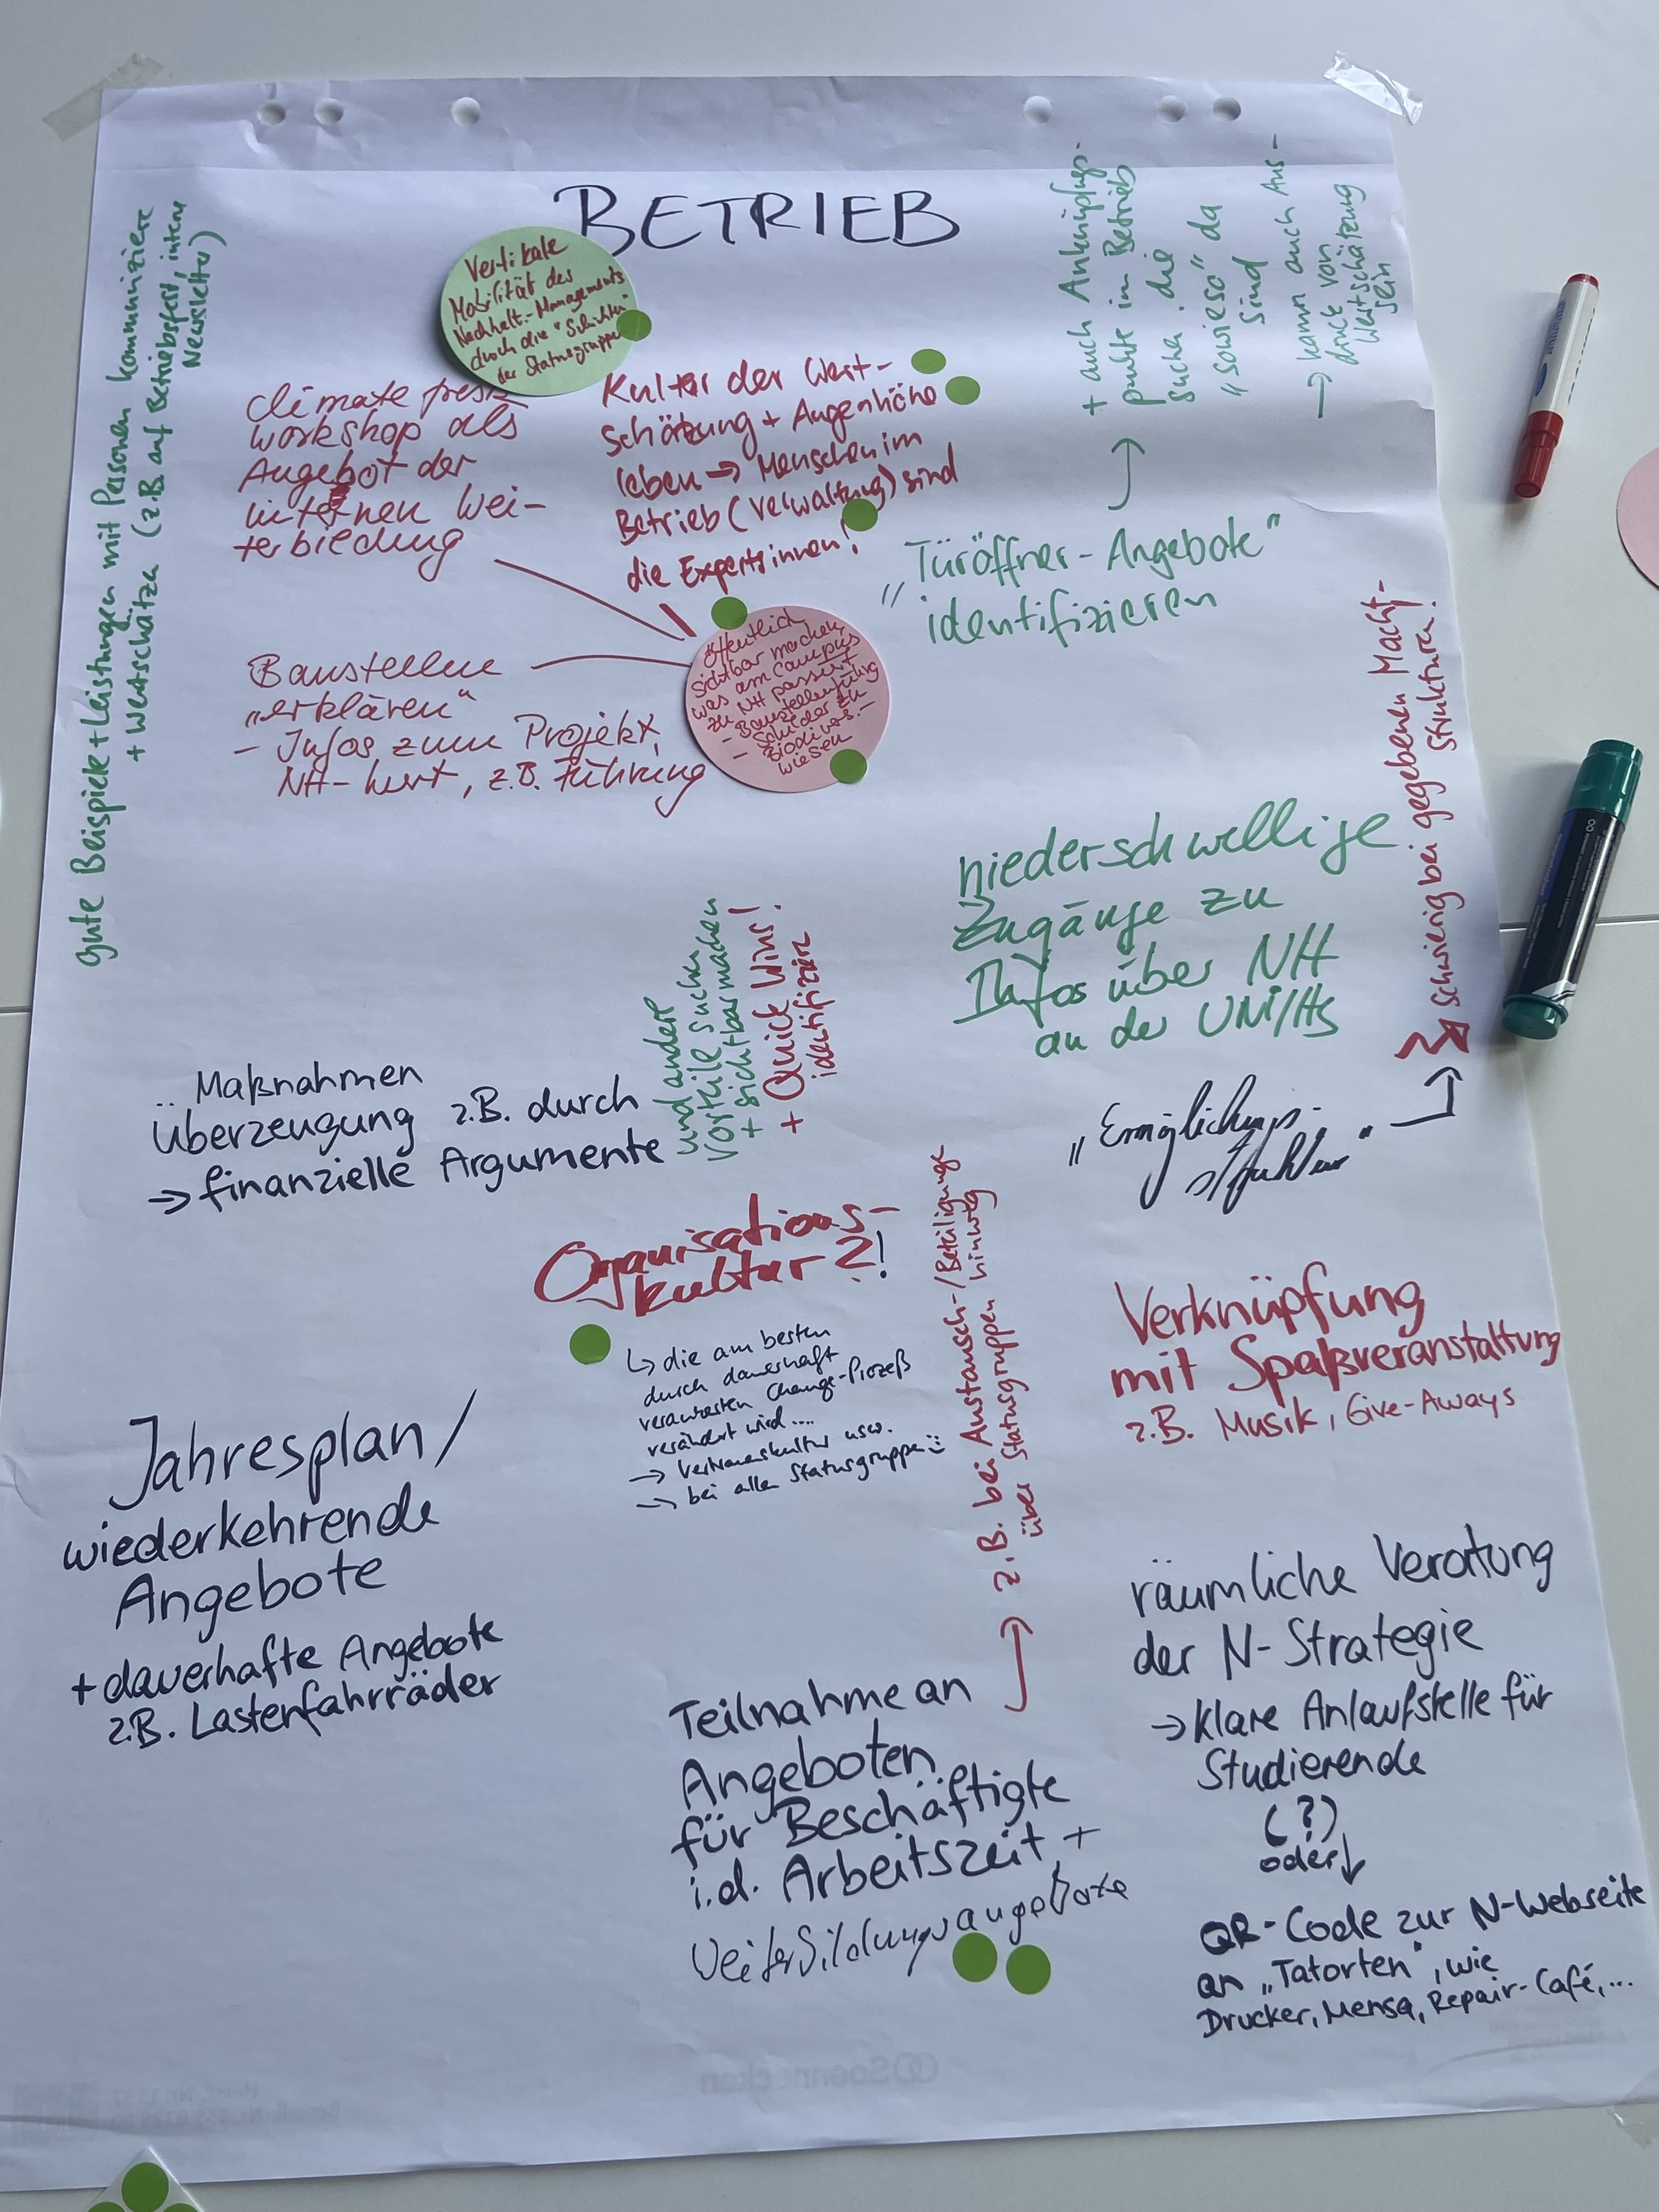 BETRIEB
Vertikale
Mobilität des
Nachhalt.-Managements
durch die "Schichten"
der Statusgruppen
Gute Beispiele + Leistungen mit Personen kommuniziere
+ Wertschätze (z.B. auf Betriebsfest, intern
Newsletter)
climate fresk
workshop als
Angebot der
internen Wei-
terbildung
Kultur der Wert-
schätzung + Augenhöhe
leben → Menschen im
Betrieb (Verwaltung) sind
die Expertsinnen!
+ auch Anknüpfungs-
punkte im Betrieb
suchen, die
"sowieso" da
sind
→ kann auch Aus-
druck von
Wertschätzung
sein
"Türöffner-Angebote"
identifizieren
Baustellen
"erklären"
- Infos zum Projekt,
NH-wert, z.B. Führung
öffentlich
sichtbar machen,
was am Campus
zu NH passiert
- Baustellenführung
- Schilder zu
Biodivers.-
wiesen
niederschwellige
Zugänge zu
Infos über NH
an der UNI/HS
schwierig bei gegebenen Macht-
strukturen!
"Ermöglichungs-
struktur"
.. Maßnahmen
Überzeugung z.B. durch
→ finanzielle Argumente
und andere
Vorteile suchen
+ sichtbar machen
+ Quick Wins!
identifizieren
Organisations-
kultur?!
↳ die am besten
durch dauerhaft
verankerten Change-Prozeß
verändert wird....
→ Vertrauenskultur usw.
→ bei allen Statusgruppen
z.B. bei Austausch-/Beteiligunge
über Statusgruppen hinweg
Verknüpfung
mit Spaßveranstaltung
z.B. Musik, Give-Aways
Jahresplan/
wiederkehrende
Angebote
+ dauerhafte Angebote
z.B. Lastenfahrräder
Teilnahme an
Angeboten
für Beschäftigte
i.d. Arbeitszeit +
Weiterbildungsangebote
räumliche Verortung
der N-Strategie
→ klare Anlaufstelle für
Studierende
(?)
oder ↓
QR-Code zur N-Webseite
an "Tatorten", wie
Drucker, Mensa, Repair-Café,...
Soennecken